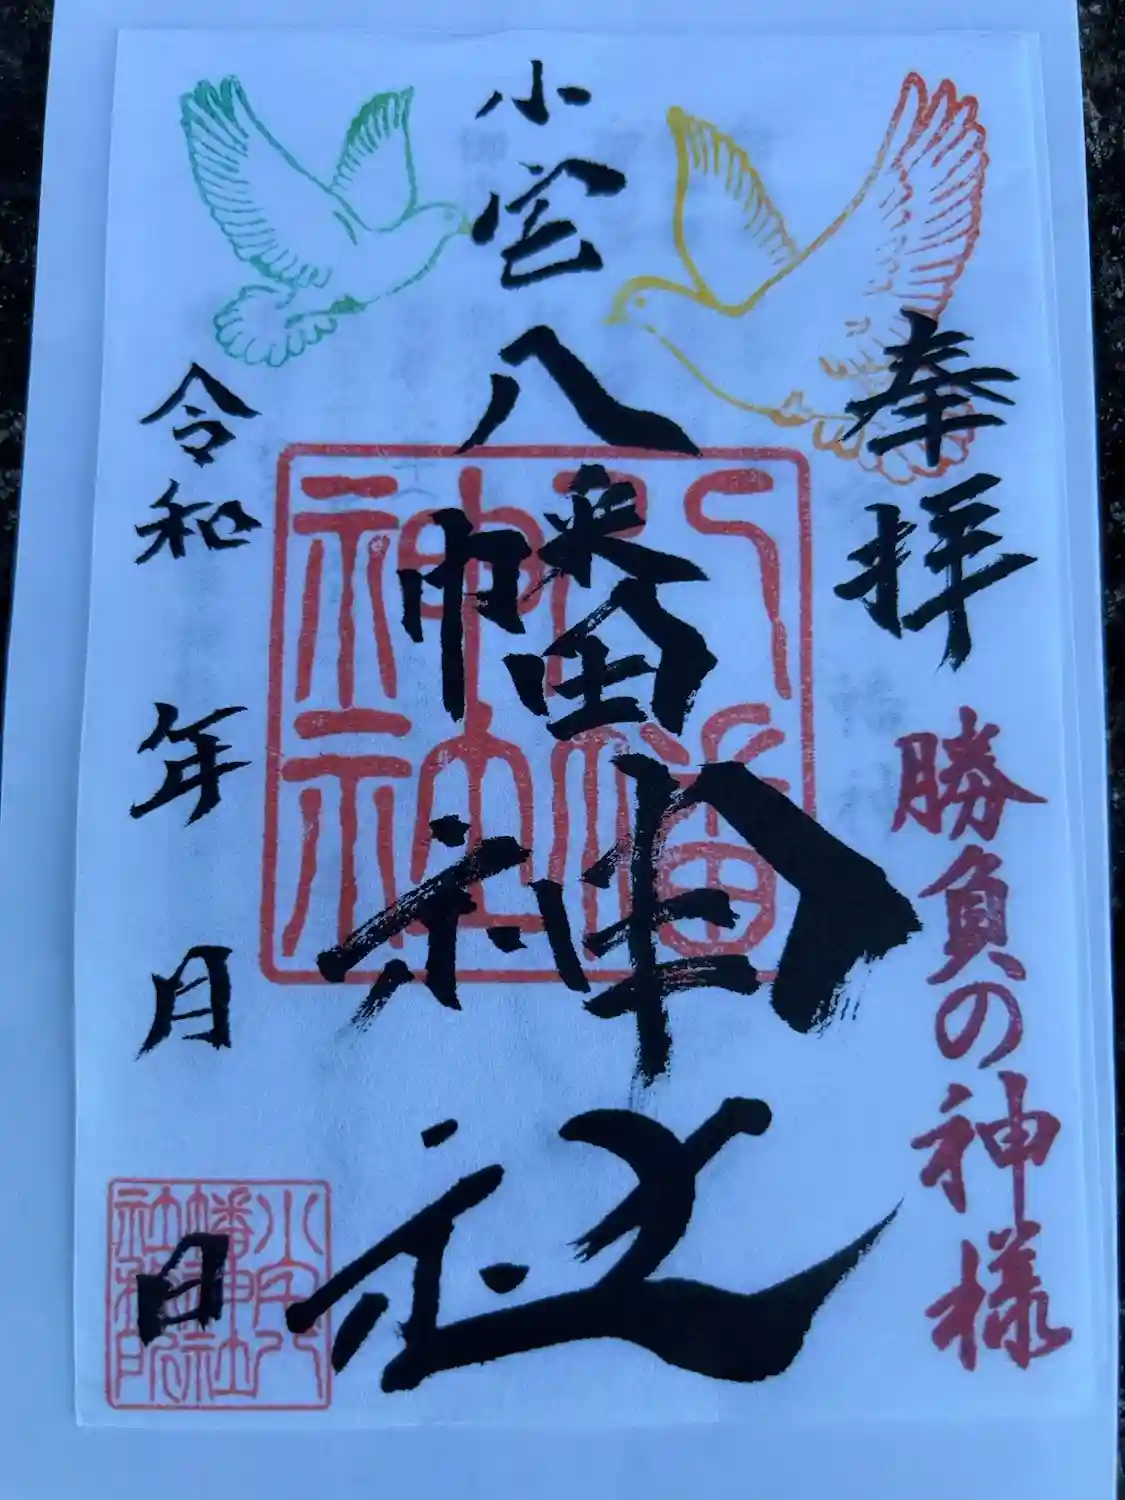 奉拝
勝負の神様
小宅八幡神社
八幡
神社
令和 年 月 日
幡神社
社務所